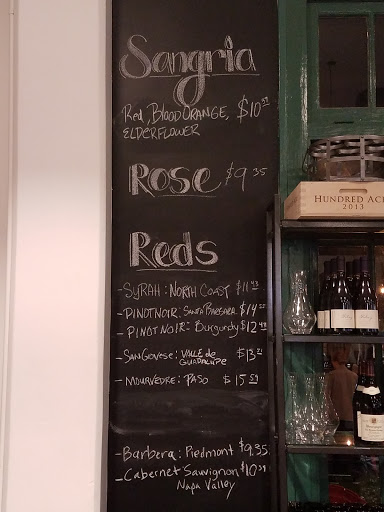 Sangria
Red, Blood ORANGE, $10
ELDERFLOWER
Rose $9.35
Reds
-SYRAH: NORTH COAST $11
-PINOT NOIR: SANTA BARBARA $14
-PINOT NOIR: Burgundy $12
-SANGIOVESE: VALLE de GUADALUPE $13
-MOURVEDRE: PASO $15
-Barbera: Piedmont $9.35
-Cabernet Sauvignon $10
Napa Valley
HUNDRED
2013